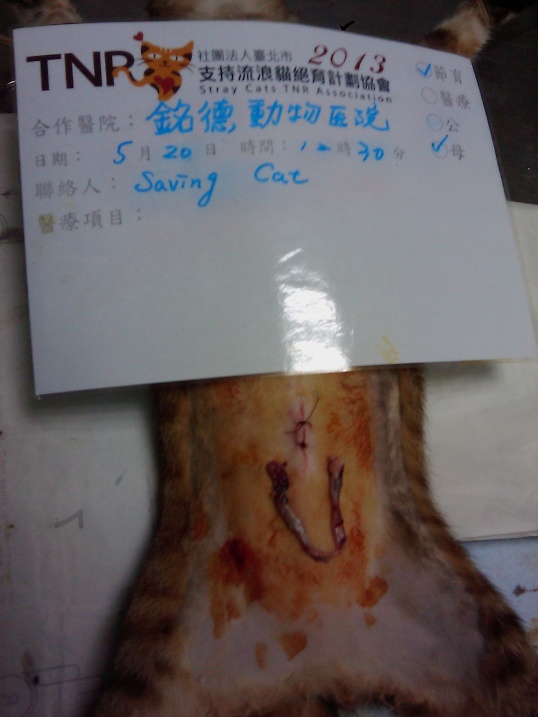 TNR 社團法人臺北市 2013
支持流浪貓絕育計劃協會
Stray Cats TNR Association
節育
醫療
公
母
合作醫院：銘德動物医院
日期：5月20日 時間：12時30分
聯絡人：Saving Cat
醫療項目：